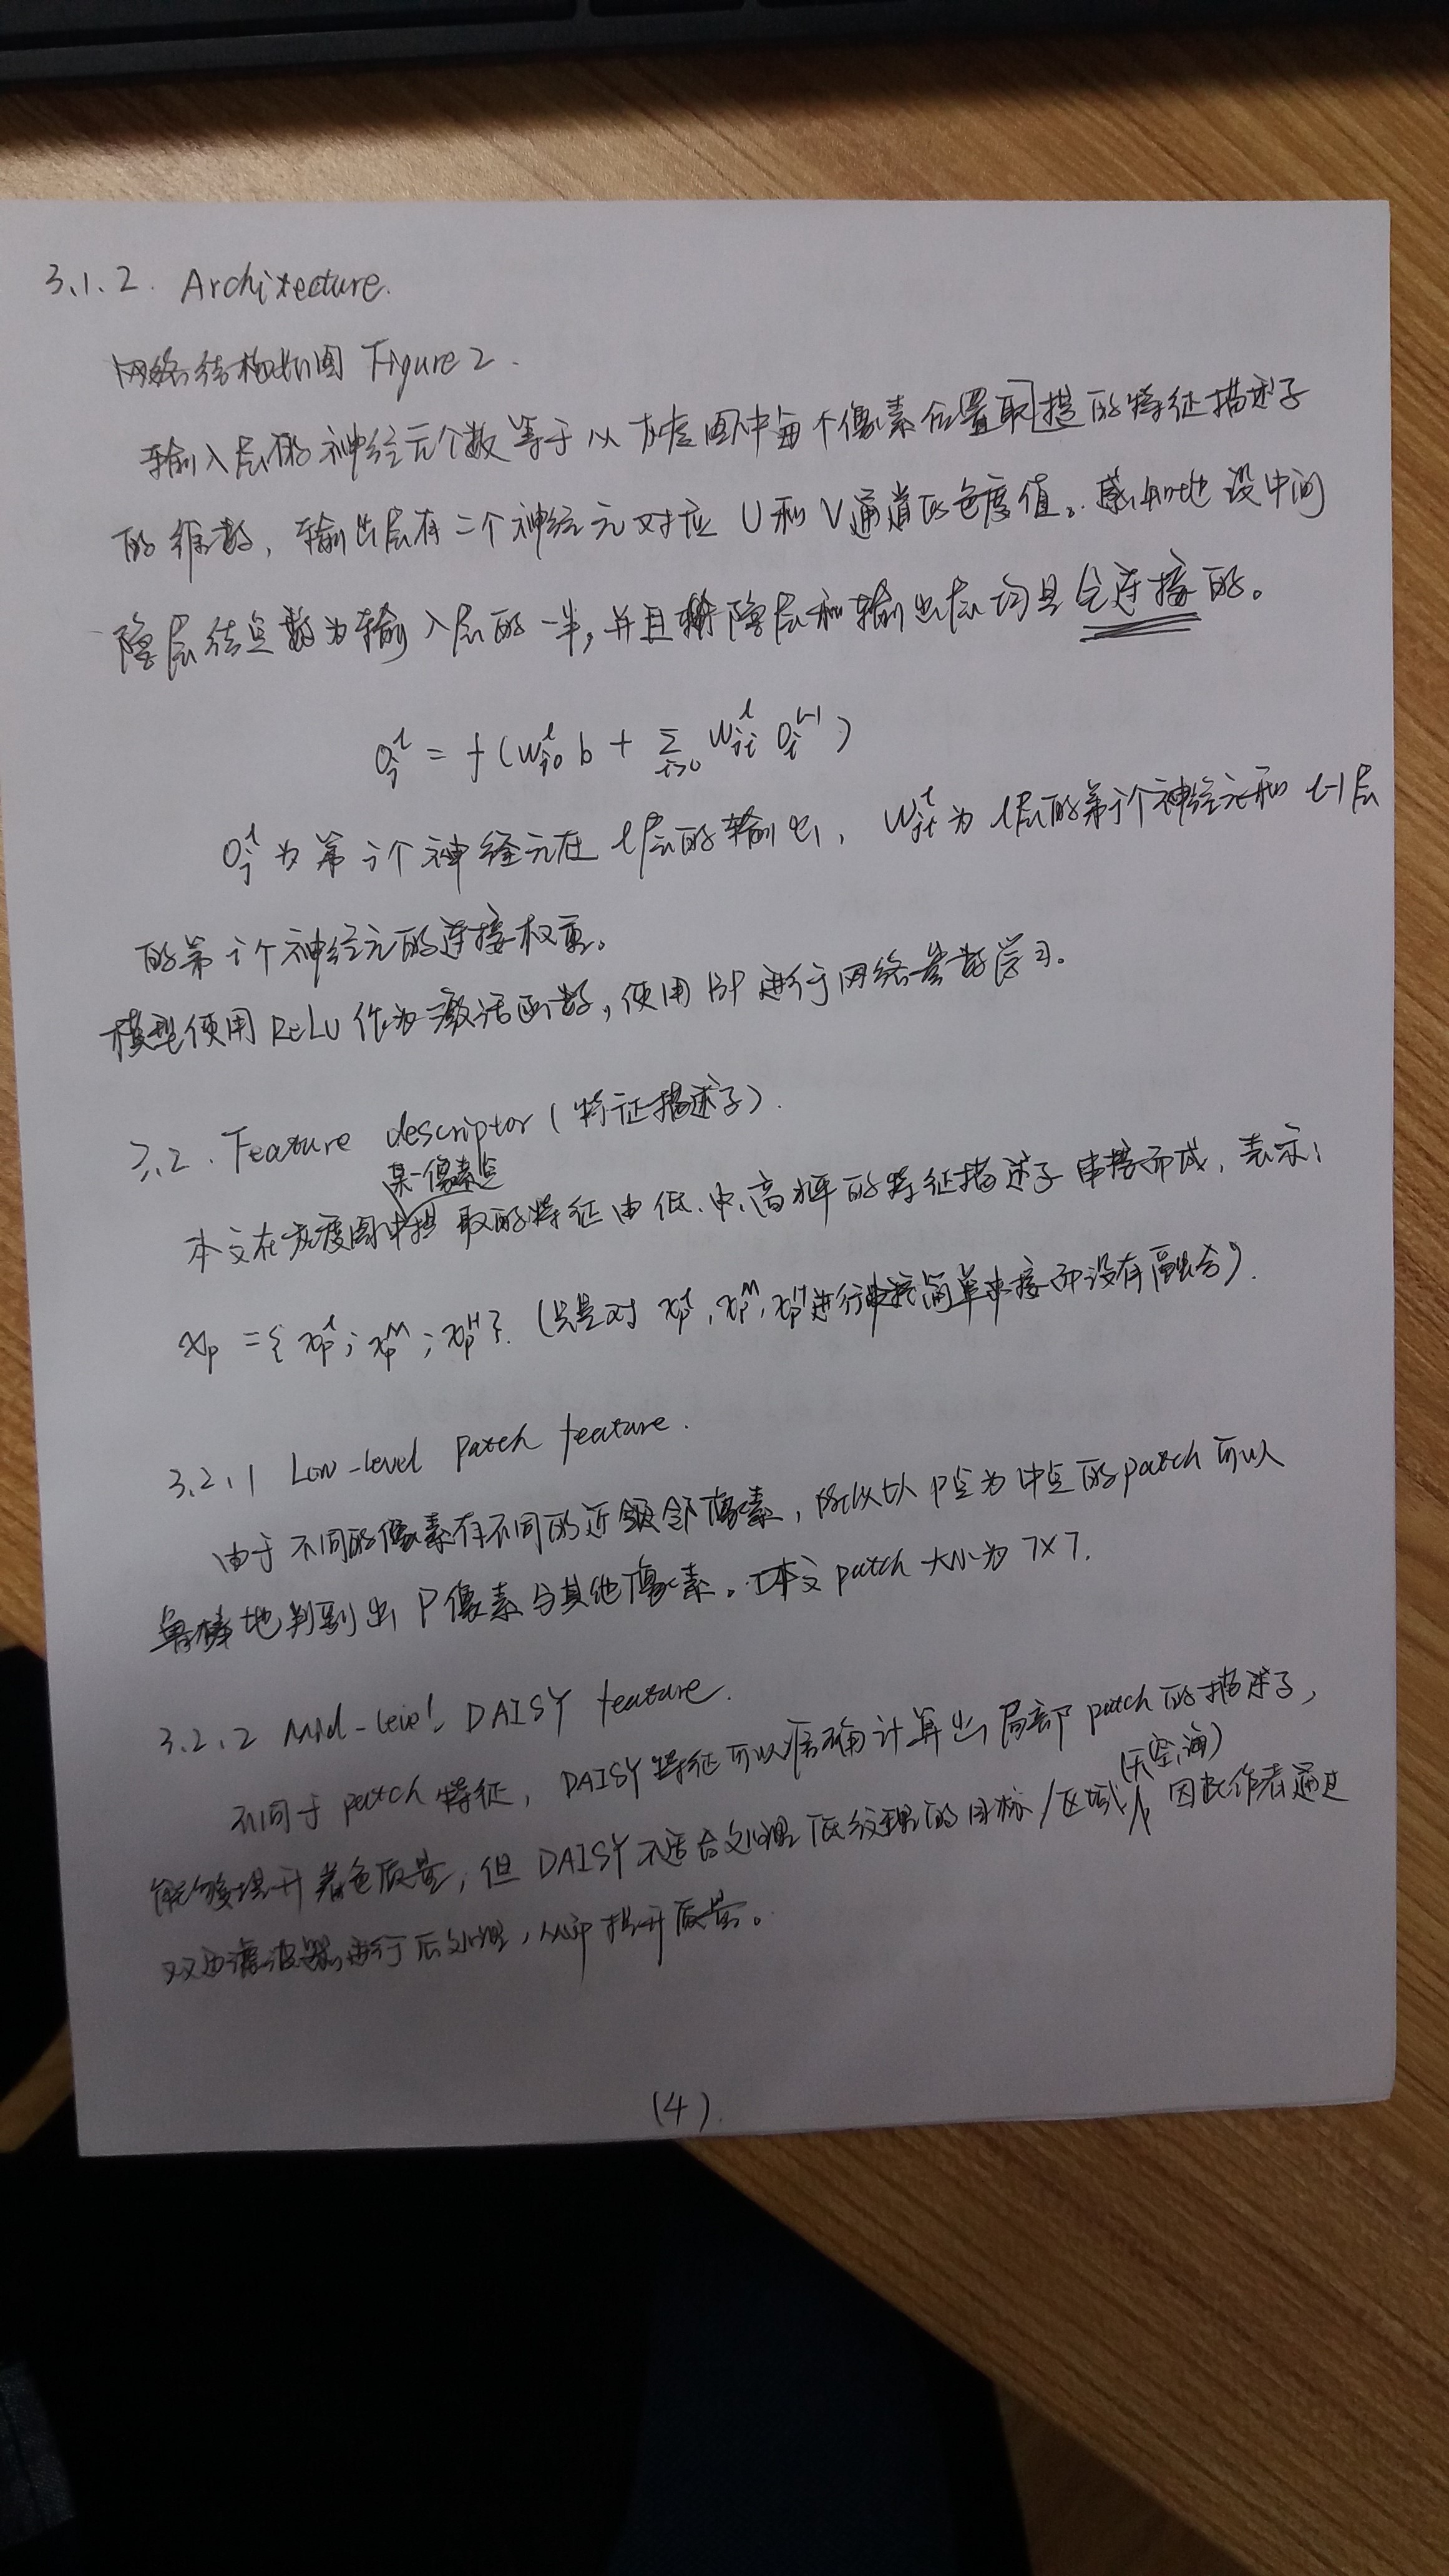 3.1.2. Architecture.
网络结构如图 Figure 2.
输入层的神经元个数等于从灰度图中每个像素位置取提的特征描述子
的维数，输出层有二个神经元对应 U和V通道的色度值。感知地设中间
隐层结点数为输入层的一半，并且隐层和输出层均是全连接的。
O_j^l = f(w_{j0}^l b + Σ_{i>0} w_{ji}^l O_i^{l-1})
O_j^l 为第 j个神经元在 l层的输出，w_{ji}^l 为 l层的第j个神经元和 l-1层
的第 i个神经元的连接权重。
模型使用 ReLU 作为激活函数，使用 BP 进行网络参数学习。
3.2. Feature descriptor (特征描述子).
某一像素点
本文在灰度图中提取的特征由低、中、高水平的特征描述子串接而成，表示：
x_p = {x_p^L; x_p^M; x_p^H}. (只是对 x_p^L, x_p^M, x_p^H 进行简单串接而没有融合).
3.2.1 Low-level patch feature.
由于不同的像素有不同的近邻像素，所以以 P点为中点的patch可以
鲁棒地判别出 P像素与其他像素。本文 patch 大小为 7×7.
3.2.2 Mid-level DAISY feature.
不同于 patch 特征，DAISY 特征可以准确计算出局部 patch 的描述子，
(天空,海)
能够提升着色质量，但 DAISY 不适合处理低纹理的目标/区域 因此作者通过
双边滤波器进行后处理，从而提升质量。
(4).